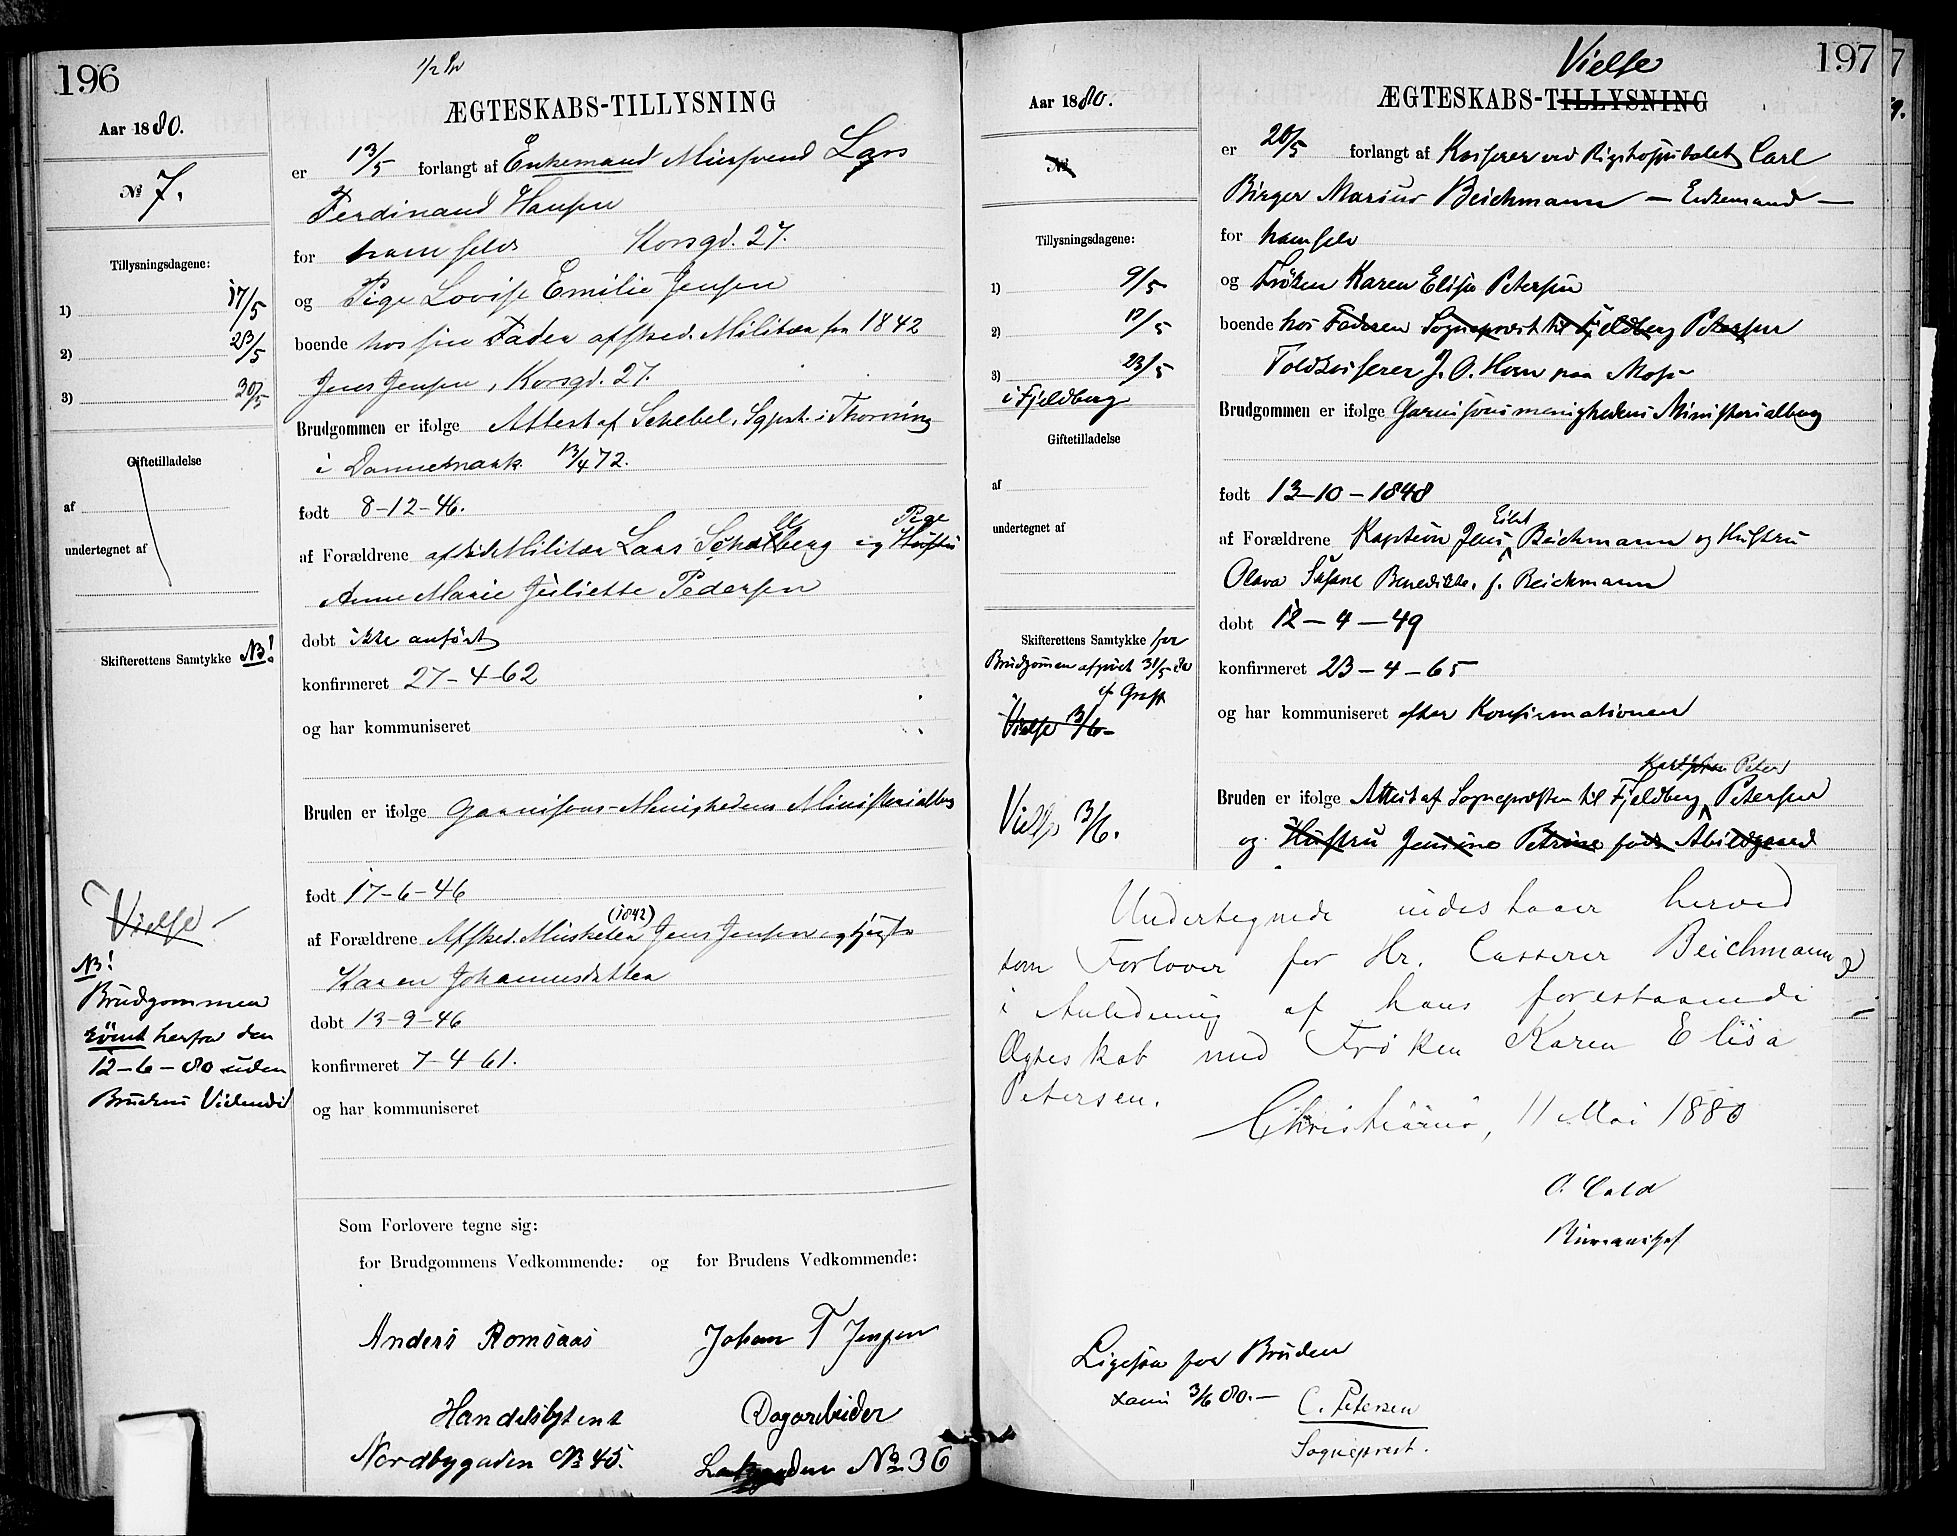 196
1/2
ÆGTESKABS-TILLYSNING
Aar 1880.
№ 7.
Tillysningsdagene:
1) 17/5
2) 23/5
3) 30/5
Giftetilladelse
af
undertegnet af
Skifterettens Samtykke NB!
Vielse
NB!
Brudgommen
römt herfra den
12-6-80 uden
Brudens Vidende
er 13/5 forlangt af Enkemand Mursvend Lars
Ferdinand Hansen
for ham selv Korsgd. 27.
og Pige Lovise Emilie Jensen
boende hos sin Fader afsked. Militær fra 1842
Jens Jensen, Korsgd. 27.
Brudgommen er ifølge Attest af Schebel, Sgprst. i Thorning
i Dannemark 13/4 72.
født 8-12-46.
af Forældrene Militær Lars og Hustru Pige
Anne Marie Juliette Pedersen
døbt ikke anført
konfirmeret 27-4-62
og har kommuniseret
Bruden er ifølge Garnisons-Menighedens Ministerialbog
født 17-6-46
af Forældrene Afsked. Musketer (1842) Jens Jensen og
Karen Johannesdatter
døbt 13-9-46
konfirmeret 7-4-61.
og har kommuniseret
Som Forlovere tegne sig:
for Brudgommens Vedkommende: og for Brudens Vedkommende:
Anders Romsaas Johan T Jensen
Handelsbetjent Dagarbeider
Nordbygaden № 45. № 36
197
Vielse
ÆGTESKABS-TILLYSNING
Aar 1880.
№
Tillysningsdagene:
1) 9/5
2) 17/5
3) 23/5
i Fjeldberg
Giftetilladelse
af
undertegnet af
Skifterettens Samtykke for
Brudgommen afgivet 31/5 80
Vielse 3/6
Vielse 3/6.
er 20/5 forlangt af Kasserer ved Rigshospitalet Carl
Birger Marius Beichmann — Enkemand —
for ham selv
og Frøken Karen Elisa Petersen
boende hos Faderen Sogneprest til Fjeldberg Petersen
Toldkasserer J. O. Horn paa Moss
Brudgommen er ifølge Garnisonsmenighedens Ministerialbog
født 13-10-1848
af Forældrene Kaptein Jens Eilet Beichmann og Hustru
Olava Susane Benedikte, f. Beichmann
døbt 12-4-49
konfirmeret 23-4-65
og har kommuniseret efter Konfirmationen
Peter
Bruden er ifølge Attest af Sognepresten til Fjeldberg Petersen
og Hustru Jensine Petrine født Abildgaard
Undertegnede indestaaer herved
som Forlover for Hr. Casserer Beichmann
i Anledning af hans forestaaende
Ægteskab med Frøken Karen Elisa
Petersen.
Christiania, 11 Mai 1880
O. Cold
Bureauchef
Ligesaa for Bruden
3/6 80.— C. Petersen
Sogneprest.